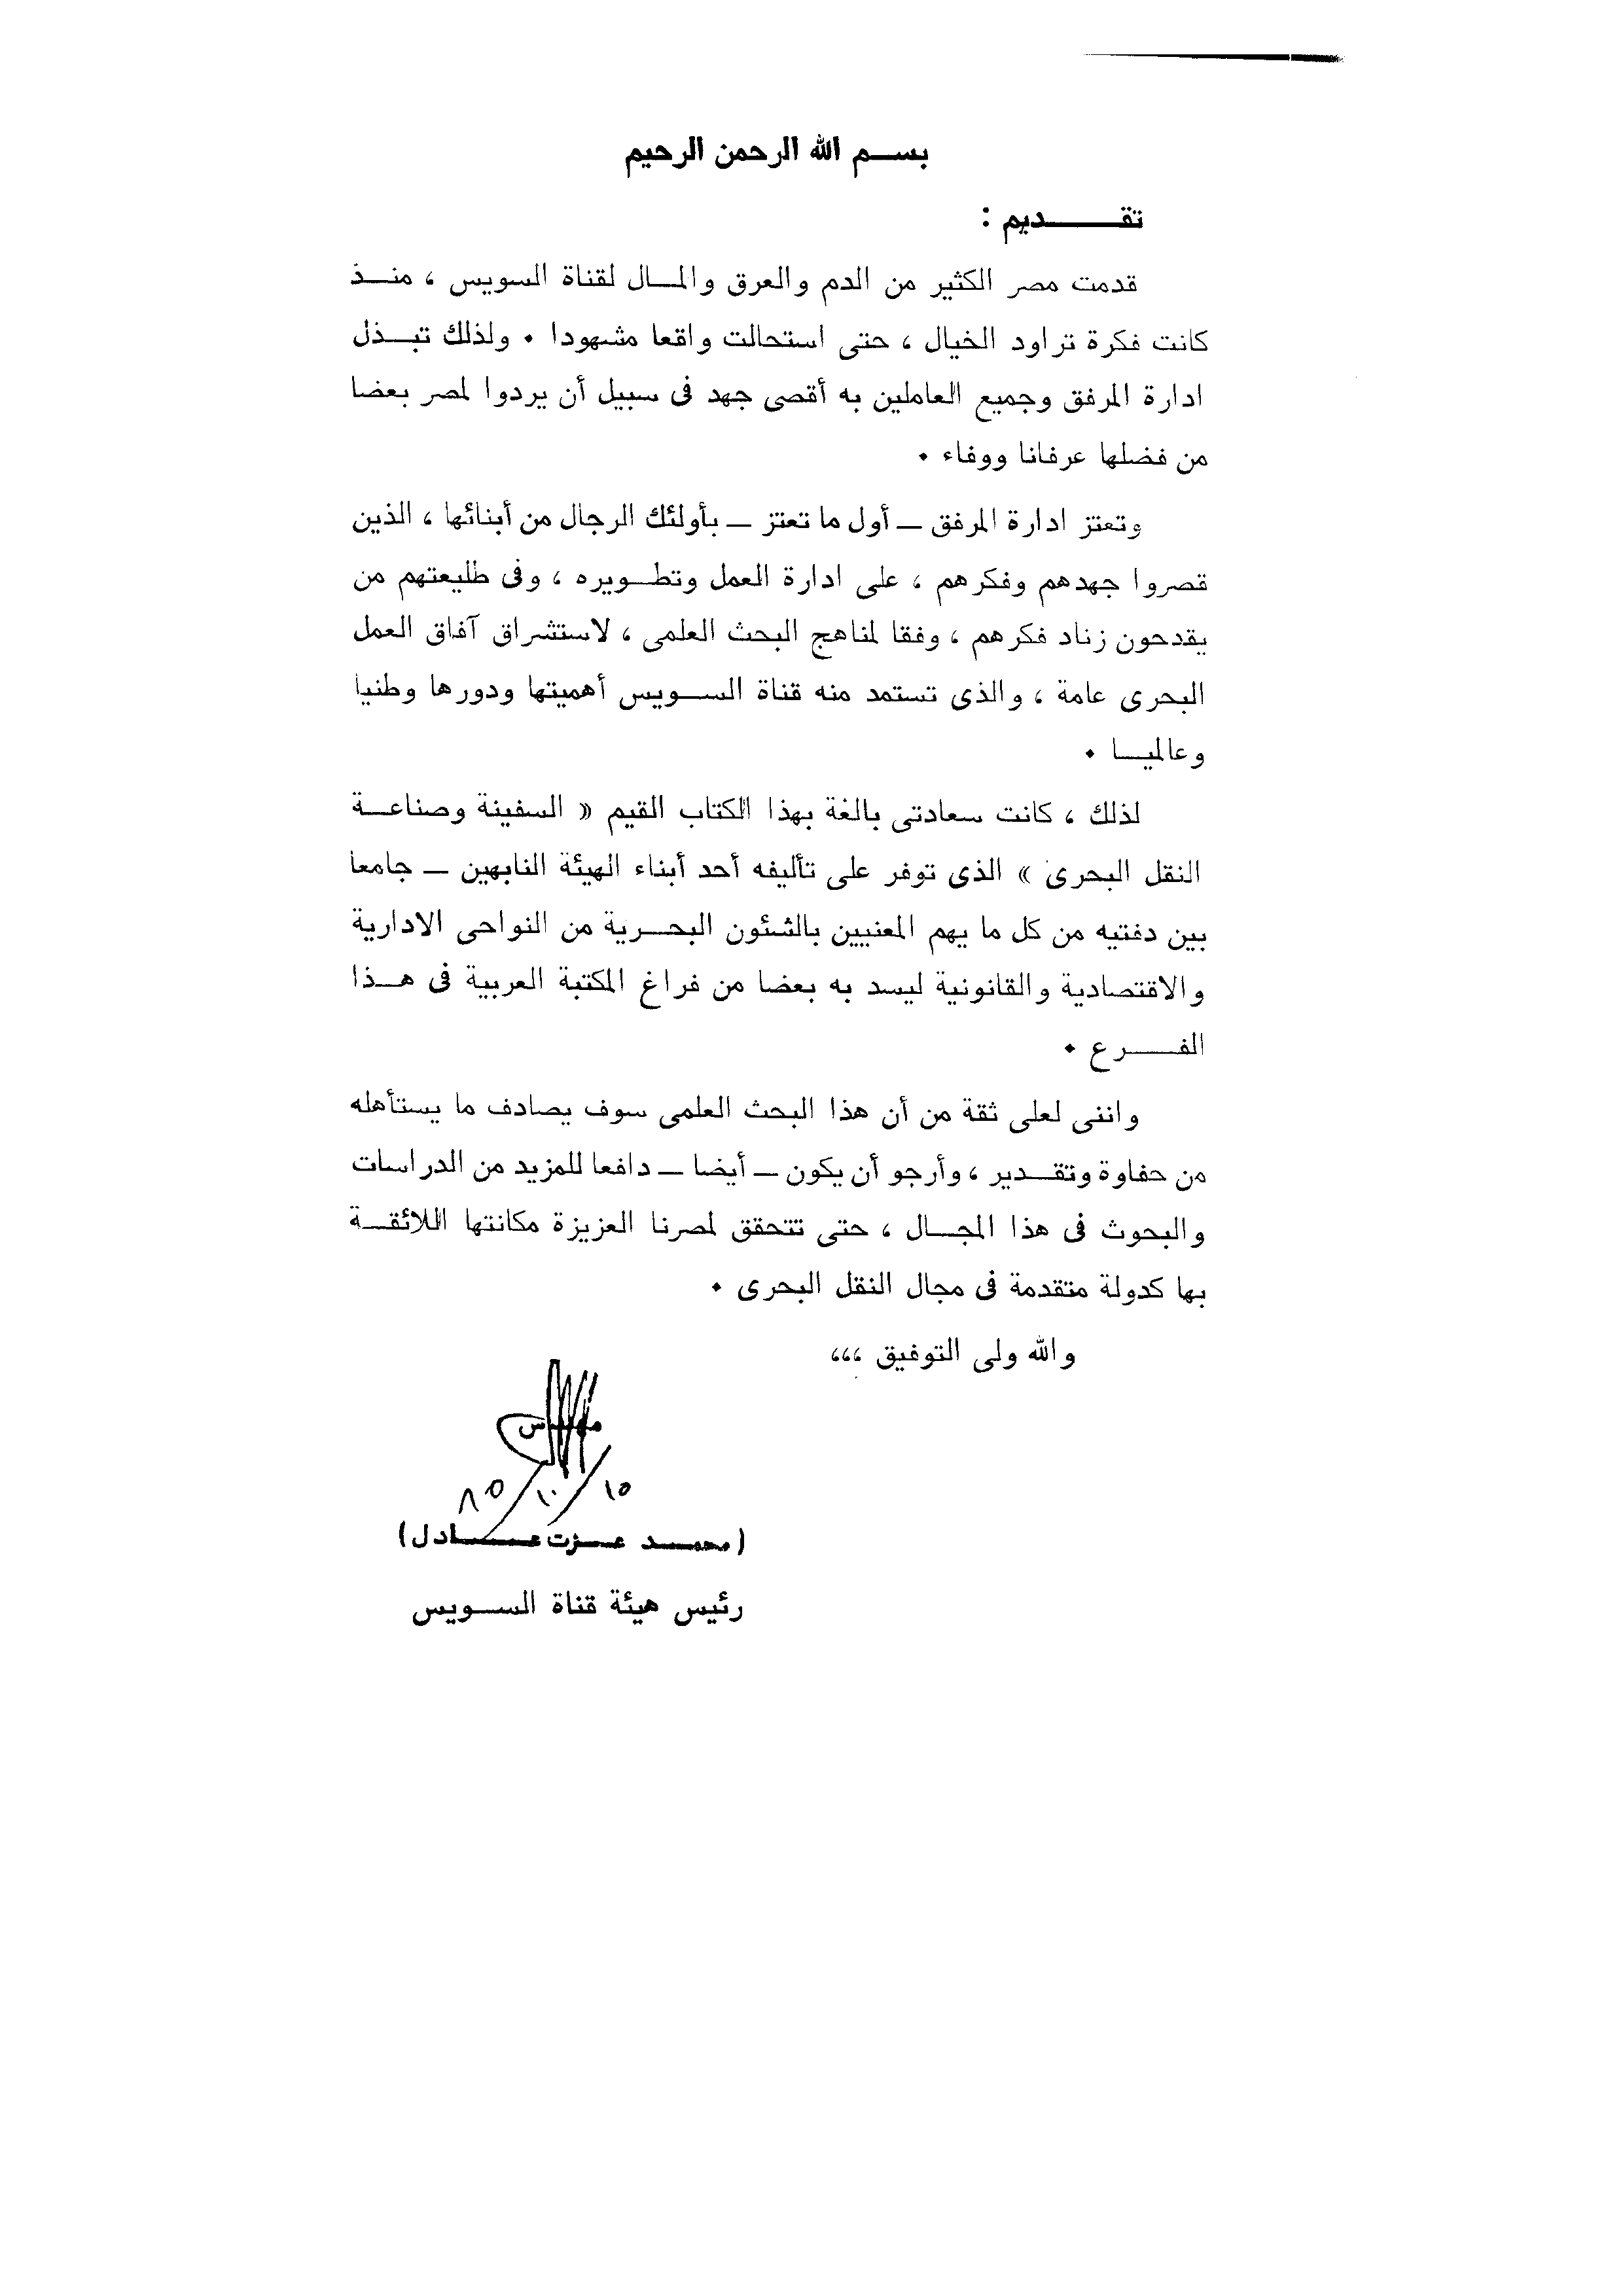 بسم الله الرحمن الرحيم
تقديم :
قدمت مصر الكثير من الدم والعرق والمال لقناة السويس ، منذ
كانت فكرة تراود الخيال ، حتى استحالت واقعا مشهودا . ولذلك تبذل
ادارة المرفق وجميع العاملين به أقصى جهد فى سبيل أن يردوا لمصر بعضا
من فضلها عرفانا ووفاء .
وتعتز ادارة المرفق ــ أول ما تعتز ــ بأولئك الرجال من أبنائها ، الذين
قصروا جهدهم وفكرهم ، على ادارة العمل وتطويره ، وفى طليعتهم من
يقدحون زناد فكرهم ، وفقا لمناهج البحث العلمى ، لاستشراق آفاق العمل
البحرى عامة ، والذى تستمد منه قناة السويس أهميتها ودورها وطنيا
وعالميا .
لذلك ، كانت سعادتى بالغة بهذا الكتاب القيم « السفينة وصناعة
النقل البحرى » الذى توفر على تأليفه أحد أبناء الهيئة النابهين ــ جامعا
بين دفتيه من كل ما يهم المعنيين بالشئون البحرية من النواحى الادارية
والاقتصادية والقانونية ليسد به بعضا من فراغ المكتبة العربية فى هذا
الفرع .
واننى لعلى ثقة من أن هذا البحث العلمى سوف يصادف ما يستأهله
من حفاوة وتقدير ، وأرجو أن يكون ــ أيضا ــ دافعا للمزيد من الدراسات
والبحوث فى هذا المجال ، حتى تتحقق لمصرنا العزيزة مكانتها اللائقة
بها كدولة متقدمة فى مجال النقل البحرى .
والله ولى التوفيق ،،،
مهندس
١٥/١٠/٨٥
(محمد عزت عادل)
رئيس هيئة قناة السويس